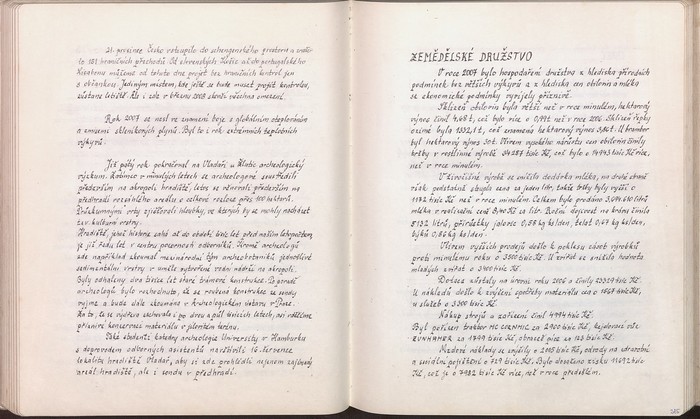 21. prosince Česko vstoupilo do schengenského prostoru a
lo 181 hraničních přechodů. Od slovenských Košic až do portugalského
můžeme od tohoto dne projet bez hraničních kontrol jen
s občankou. Jediným místem, kde ještě se bude muset projít kontrolou,
zůstane letiště. Ale i zde v březnu 2008 skončí všechna omezení.
Rok 2007 se nesl ve znamení boje s globálním oteplováním
a emisemi skleníkových plynů. Byl to i rok extrémních teplotních
výkyvů.
Již pátý rok pokračoval na Vladaři, u Žlutic archeologický
výzkum. Zatímco v minulých letech se archeologové soustředili
především na akropoli hradiště, letos se věnovali především
předhradí rozsáhlého areálu o celkové rozloze přes 100 hektarů.
Průzkumnými vrty zjišťovali hloubky, ve kterých by se mohly nacházet
tzv. kulturní vrstvy.
Hradiště, jehož historie sahá až do období, tisíc let před naším letopočtem,
je již řadu let v centru pozornosti odborníků. Kromě archeologů
zde například zkoumal mezinárodní tým archeobotaniků jednotlivé
sedimentární vrstvy v uměle vytvořené vodní nádrži na akropoli.
Byly odhaleny dva tisíce let staré trámové konstrukce. Po poradě
archeologů bylo rozhodnuto, že se roubená konstrukce ze sondy
vyjme a bude dále zkoumána v Archeologickém ústavu v Praze.
Na to, co se výdřeva zachovala i po dvou a půl tisících letech, asi vděčíme
přísunu konzervaci materiálu v plenkém terénu.
Také studenti katedry archeologie University v Hamburku
s doprovodem odborných asistentů navštívili 16. července
lokalitu hradiště Vladař, aby si zde prohlédli nejenom zajímavý
areál hradiště, ale i sondu v předhradí.
ZEMĚDĚLSKÉ DRUŽSTVO
V roce 2007 bylo hospodaření družstva z hlediska přírodních
podmínek bez větších výkyvů a z hlediska cen obilovin a mléka
se ekonomické podmínky vyvíjely příznivě.
Sklizeň obilovin byla větší než v roce minulém, hektarový
výnos činil 4,08 t, což bylo více o 0,99 t než v roce 2006. Sklizeň řepky
ozimé byla 1332,1 t, což znamená hektarový výnos 3,86 t. U brambor
byl hektarový výnos 30 t. Vlivem vysokého nárůstu cen obilovin činily
tržby v rostlinné výrobě 34287 tisíc Kč, což bylo o 14943 tisíc Kč více,
než v roce minulém.
V živočišné výrobě se snížila dodávka mléka, na druhé straně
však podstatně stoupla cena za jeden litr, takže tržby byly vyšší o
1172 tisíc Kč než v roce minulém. Celkem bylo prodáno 3.099.610 litrů
mléka v realizační ceně 8,40 Kč za litr. Roční dojivost na krávu činila
5132 litrů, přírůstky jalovic 0,58 kg/kd/den, telat 0,67 kg/kd/den,
býků 0,86 kg/kd/den.
Vlivem vyšších prodejů došlo k poklesu obrat výrobků
proti minulému roku o 3300 tisíc Kč. U zvířat se snížila hodnota
mladých zvířat o 3100 tisíc Kč.
Dotace zůstaly na úrovni roku 2006 a činily 23329 tisíc Kč.
U nákladů došlo k zvýšení spotřeby materiálu cca o 1067 tisíc Kč,
u služeb o 3300 tisíc Kč.
Nákup strojů a zařízení činil 4994 tisíc Kč.
Byl pořízen traktor MC CORMIC za 2400 tisíc Kč, kejdovací vůz
ZUNHAMER za 1749 tisíc Kč, obraceč píce za 123 tisíc Kč.
Mzdové náklady se zvýšily o 2105 tisíc Kč, odvody na zdravotní
a sociální pojištění o 729 tisíc Kč. Bylo dosaženo zisku 11692 tisíc
Kč, což je o 7982 tisíc více, než v roce předešlém.